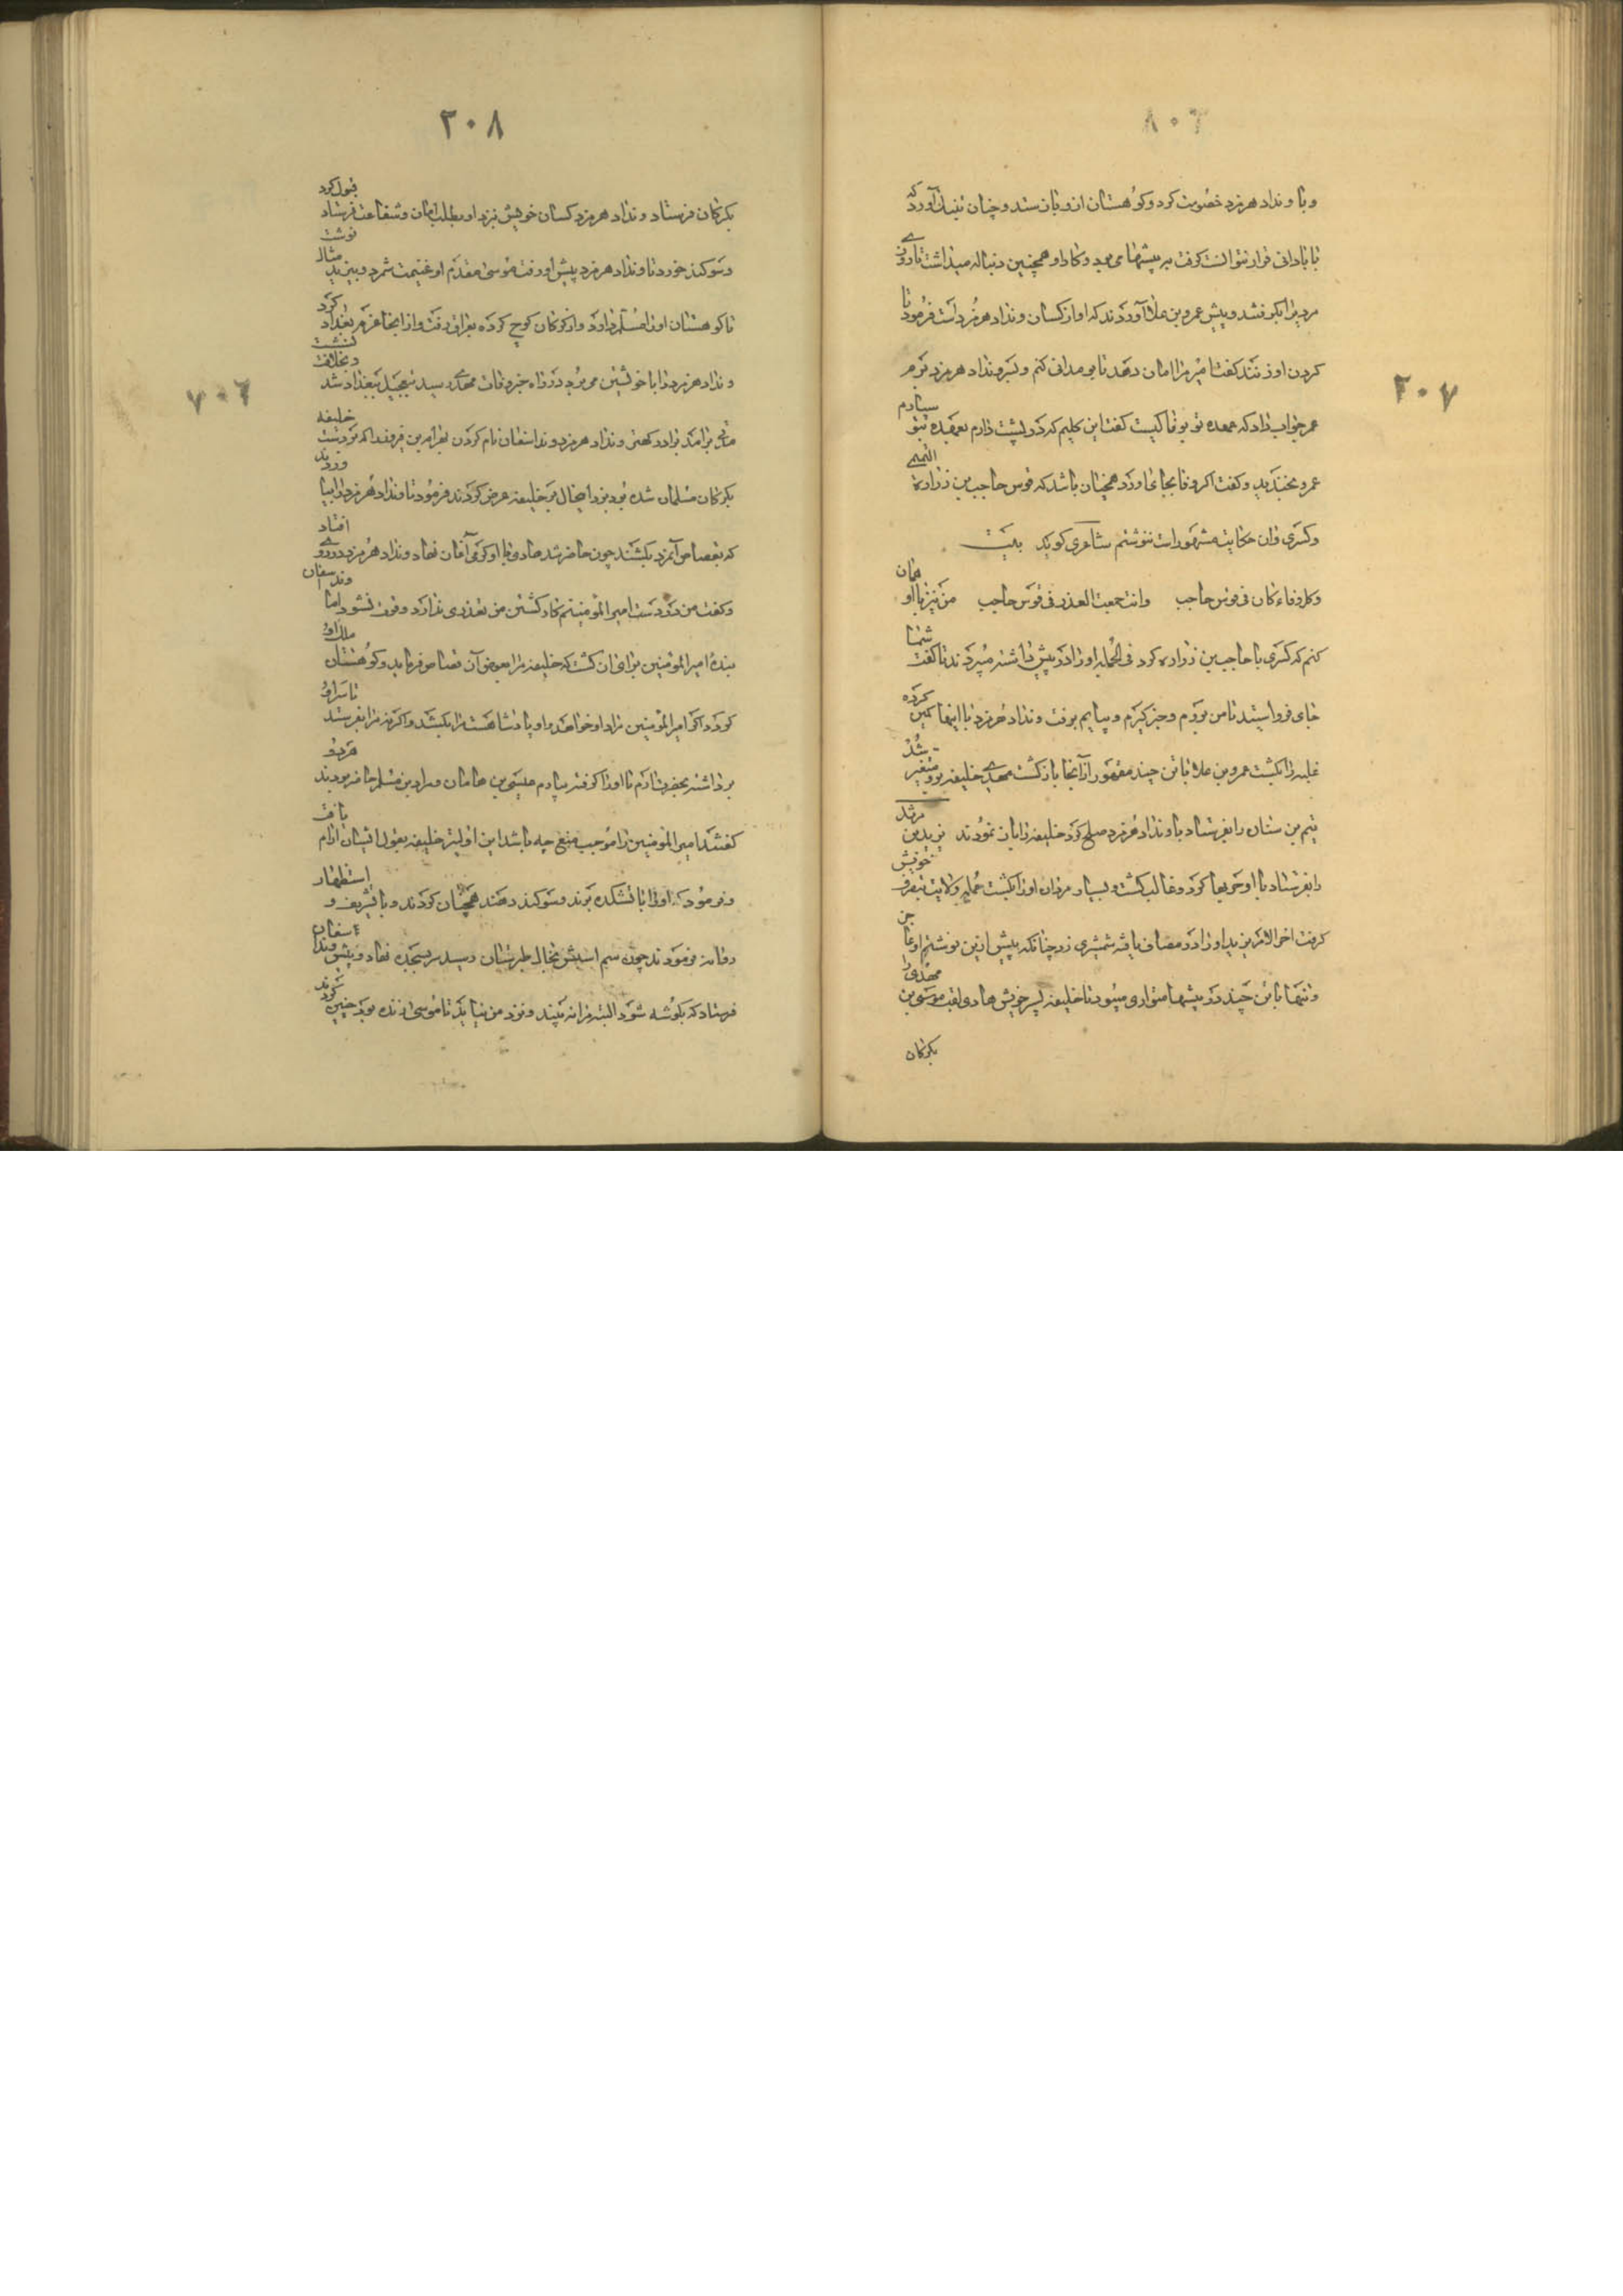 ۲۰۷
و با ونداد هرمزد خصومت کرد و کوهستان ازو باز ستد و چنان بتنک آورد که
تا بادانی قرار نتوانست گرفت به بیشها می بود و کار او همچنین دنباله میداشت تا روزی
مردی را بگرفتند و پیش عمرو بن علا آوردند که او از کسان ونداد هرمزد است فرمود تا
کردن او زنند کفت امیر مرا امان دهد تا بو مدانی کنم و بسر ونداد هرمزد برم
عمر جواب داد که عهده تو بوفا کیست کفت این کلیم که در پشت دارم بعهده بتو سپارم
عمرو بخندید و کفت اکر وفا بجای آورد همچنان باشد که قوس حاجب بن زراره التمیمی
و کسری و ان حکایت مشهور است ننوشتم شاعری کوید بیت
وکل وفاء کان فی قوس حاجب وانت جمعت الغدر فی قوس حاجب من نیز با او همان
کنم که کسری با حاجب بن زراره کرد فی الجمله او را در پیش داشته میبردند تا کفت شما
جای فروایستید تا من بروم و خبر کیرم و بیایم برفت و ونداد هرمزد با اینها کمین کرده
غلبه را بکشت عمرو بن علا با تن چند مقهور از آنجا باز کشت مهدی خلیفه برو متغیر شد
تمیم بن سنان را بفرستاد با ونداد هرمزد صلح کرد خلیفه را باز نمودند یزید بن مرثد
را بفرستاد با او حربها کرد و غالب کشت و بسیار مردان او را بکشت جمله ولایت بتصرف خویش
کرفت اخر الامر یزید او را در مصاف یافته شمشیری زد چنانکه پیش ازین نوشتم او بجا
و تنها با تن چند در بیشها متواری میبود تا خلیفه پسر خویش هادی لقب موسی بن مهدی را
بکرکان
۲۰۸
بکرکان فرستاد ونداد هرمزد کسان خویش نزد او بطلب امان و شفاعت فرستاد قبول کرد
و سوکند خورد تا ونداد هرمزد پیش او رفت موسی مقدم او غنیمت شمرد و بیزید مثال نوشت
تا کوهستان او را مسلم دارد و از کرکان کوچ کرده بعراق رفت و از انجا عزم بغداد کرد
ونداد هرمزد را با خویشتن می برد در راه خبر وفات مهدی رسید بتعجیل ببغداد شد و بخلافت بنشست
مدتی برآمد برادر کهتر ونداد هرمزد ونداسفان نام کردن بهرام بن فیروز را که بر دست خلیفه
بکرکان مسلمان شده بود بزد این حال بر خلیفه عرض کردند فرمود تا ونداد هرمزد را بیاورند
که بقصاص آنمرد بکشند چون حاضر شد هادی را با او کرمی آغاز نهاد ونداد هرمزد در روی افتاد
و کفت من در دست امیر المومنینم کار کشتن من تعذری ندارد و فوت نشود اما ونداسفان
بندهٔ امیر المومنین برای آن کشت که خلیفه مرا بعوض آن قصاص فرماید و کوهستان ملک او
کردد اکر امیر المومنین سر او خواهد و او پادشاهست مرا بکشد و اکر نه مرا بفرستد تا سر او
برداشته بحضرت آرم تا او را کرفته بیارم عیسی بن هامان و مراد بن مسلم حاضر بودند هر دو
کفتند امیر المومنین را موجب منع چه باشد این اولیتر خلیفه بقول ایشان ارام یافت
و فرمود که او را باتشکده برند و سوکند دهند همچنان کردند و با تشریف و استظهار
روانه فرمودند چون سم اسبش بخاک طبرستان رسید سر بسجده نهاد و پیش ونداسفان
فرستاد که بکوشه شود البته مرا نه بیند و نزد من نیاید تا موسی زنده بود چنین کردند